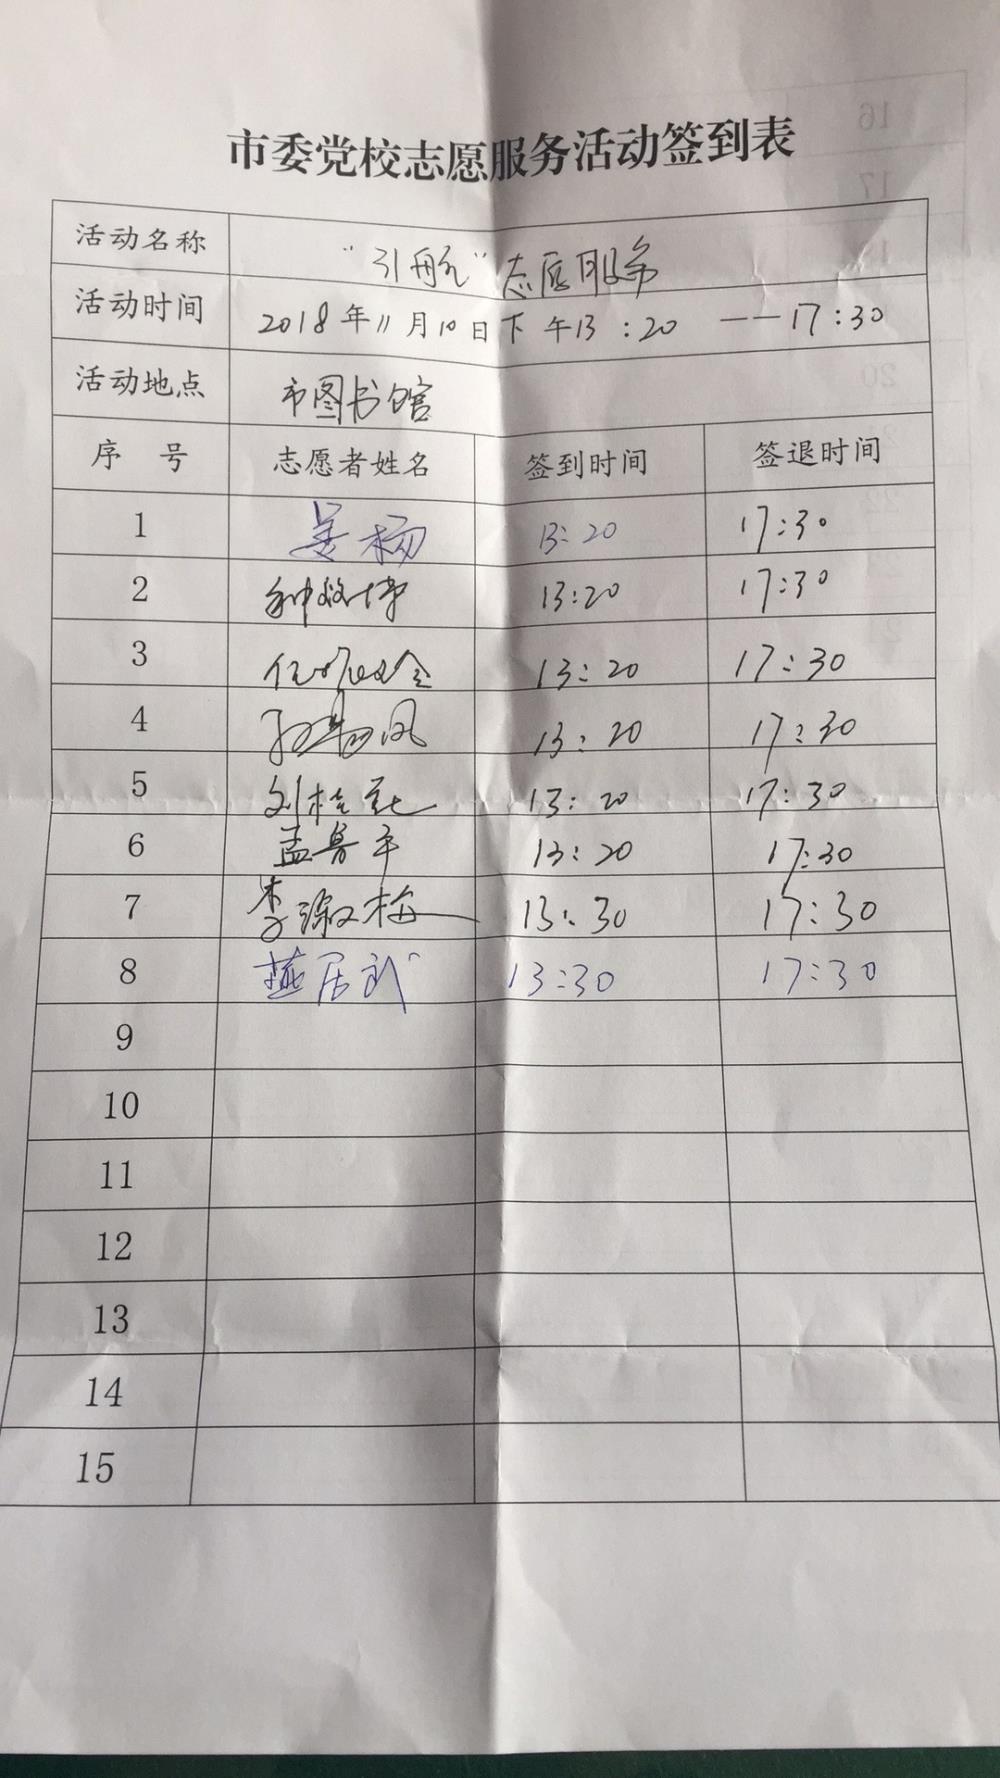 市委党校志愿服务活动签到表
活动名称 "引航"志愿服务
活动时间 2018年11月10日下午13:20 ——17:30
活动地点 市图书馆
序 号 志愿者姓名 签到时间 签退时间
1 姜杨 13:20 17:30
2 13:20 17:30
3 13:20 17:30
4 13:20 17:30
5 刘桂 13:20 17:30
6 孟鲁平 13:20 17:30
7 李淑梅 13:30 17:30
8 燕居武 13:30 17:30
9
10
11
12
13
14
15
16
17
20
22